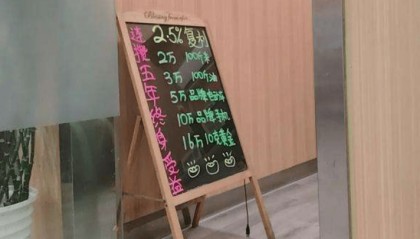 连攒五年终身受益
2.5%复利
2万 100斤米
3万 100斤油
5万品牌
10万品牌手机
16万10克黄金